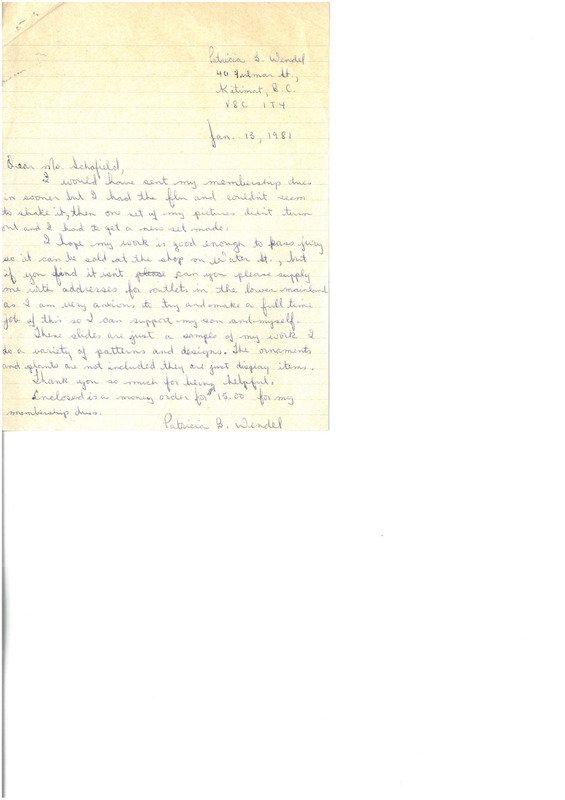 Patricia B. Wendel
40 Fulmar St.,
Kitimat, B.C.
V8C 1T4
Jan. 13, 1981
Dear Ms. Schofield,
I would have sent my membership dues
in sooner but I had the flu and couldnt seem
to shake it, then one set of my pictures didn't turn
out and I had to get a new set made.
I hope my work is good enough to pass jury
so it can be sold at the shop on Water St., but
if you find it isnt please can you please supply
me with addresses for outlets in the lower mainland
as I am very anxious to try and make a full time
job of this so I can support my son and myself.
These slides are just a sample of my work I
do a variety of patterns and designs. The ornaments
and plants are not included they are just display items.
Thank you so much for being helpful.
Enclosed is a money order for $15.00 for my
membership dues.
Patricia B. Wendel